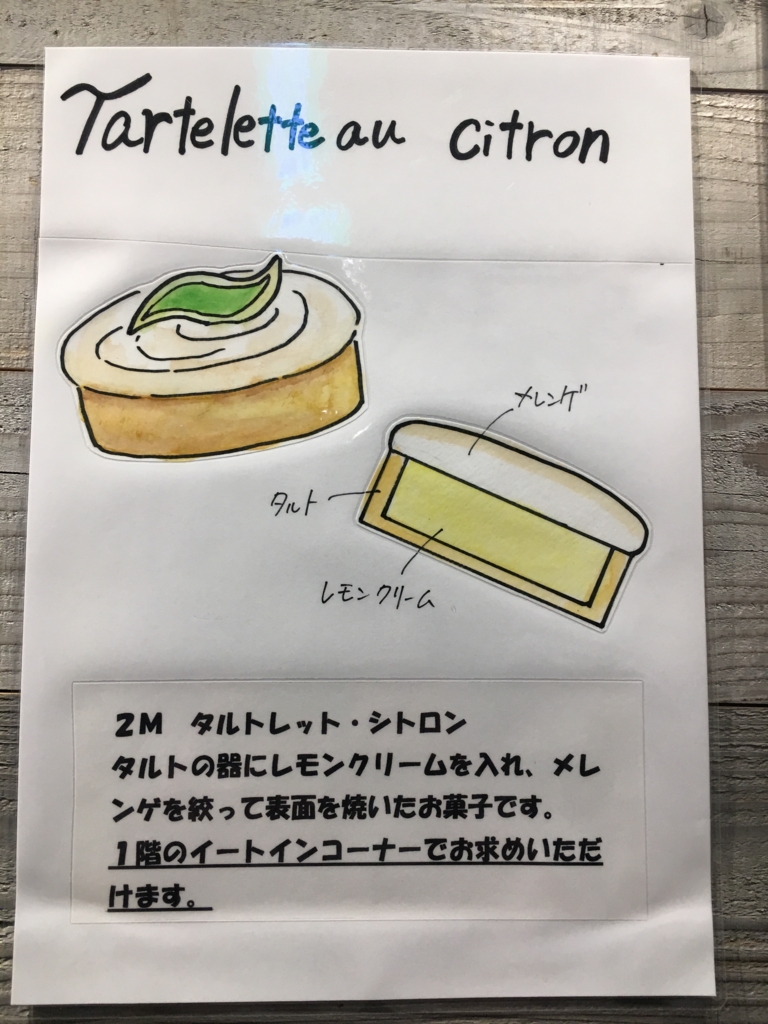 Tartelette au citron
メレンゲ
タルト
レモンクリーム
２Ｍ　タルトレット・シトロン
タルトの器にレモンクリームを入れ、メレ
ンゲを絞って表面を焼いたお菓子です。
１階のイートインコーナーでお求めいただ
けます。